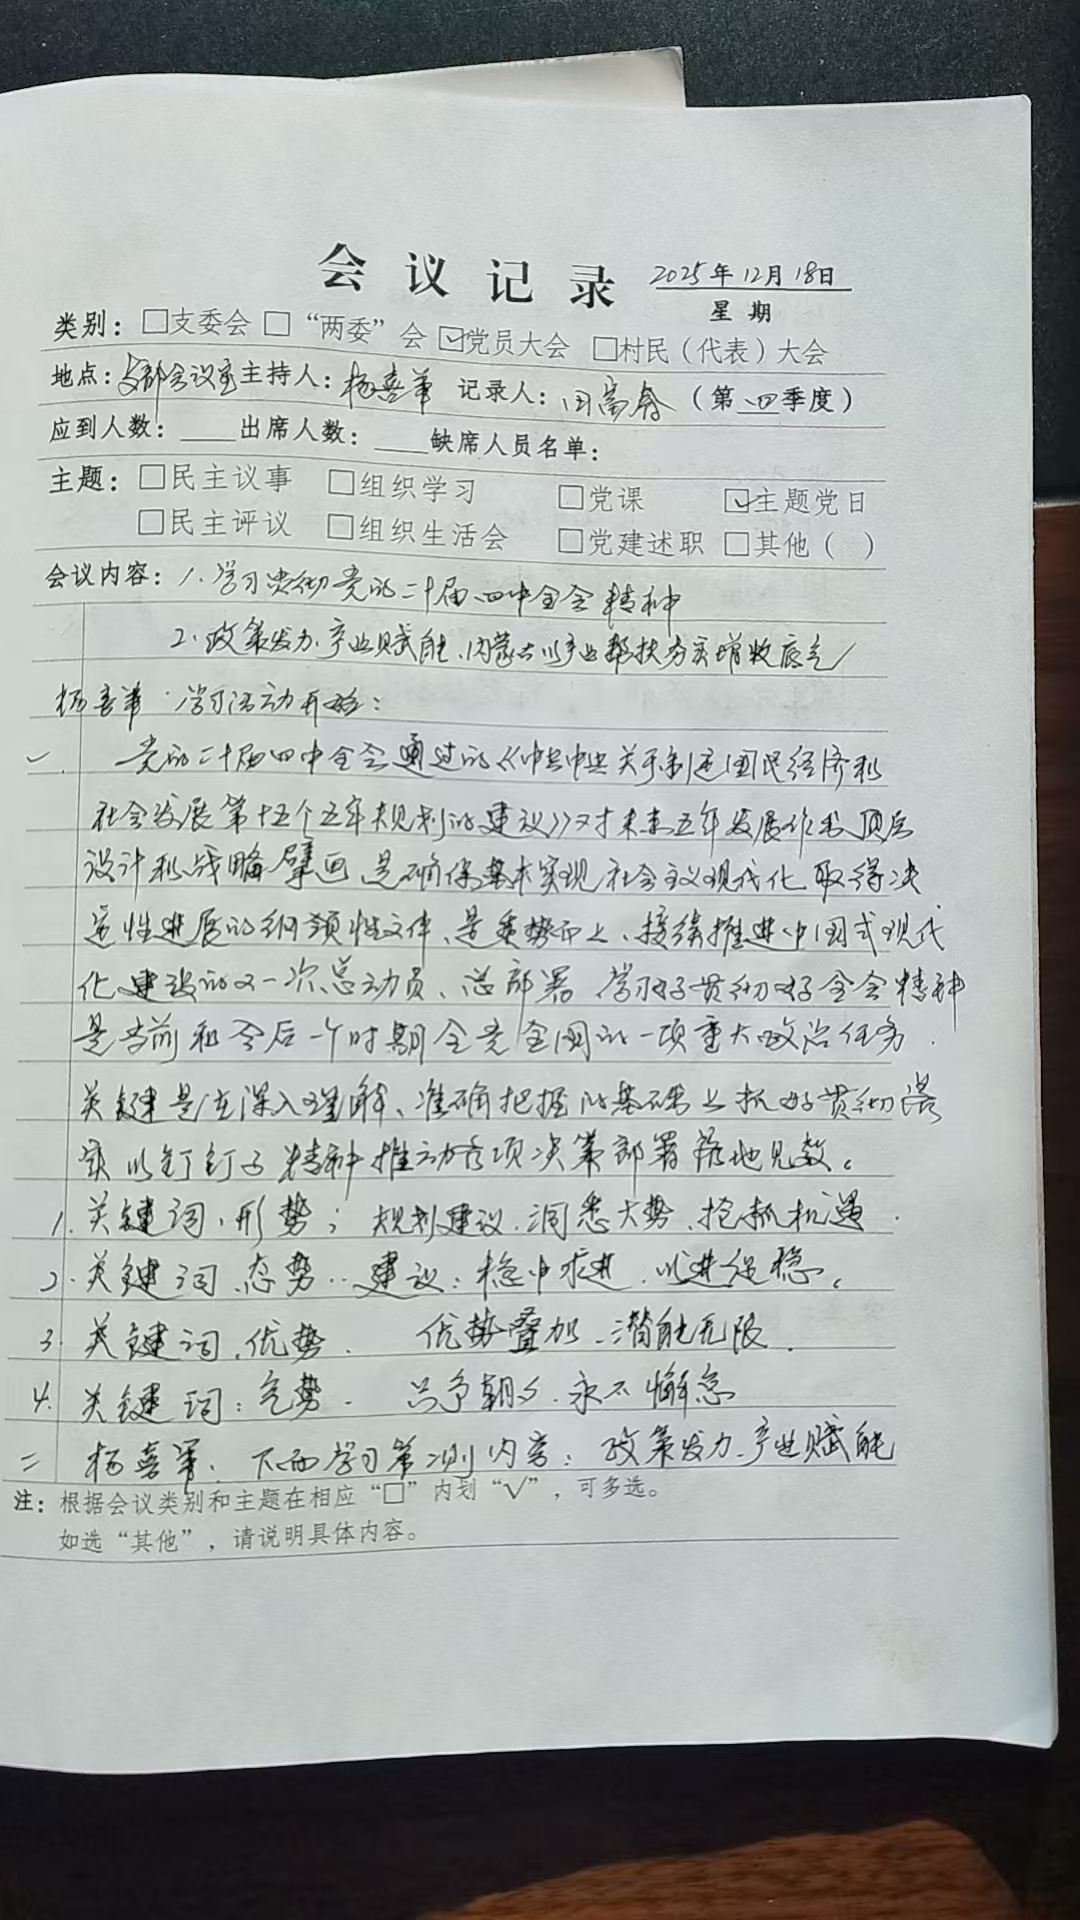 会议记录 2025年12月18日
星期
类别：□支委会 □“两委”会 ☑党员大会 □村民（代表）大会
地点：支部会议室 主持人：杨喜军 记录人：（第四季度）
应到人数：____出席人数：____缺席人员名单：
主题：□民主议事 □组织学习 □党课 ☑主题党日
□民主评议 □组织生活会 □党建述职 □其他（ ）
会议内容：1.学习贯彻党的二十届四中全会精神
2.政策发力、产业赋能、内蒙古以产业帮扶夯实增收底气
杨喜军：学习活动开始：
一、党的二十届四中全会通过的《中共中央关于制定国民经济和
社会发展第十五个五年规划的建议》对未来五年发展作出顶层
设计和战略擘画，是确保基本实现社会主义现代化取得决
定性进展的纲领性文件、是乘势而上、接续推进中国式现代
化建设的又一次总动员、总部署 学习好贯彻好全会精神
是当前和今后一个时期全党全国的一项重大政治任务．
关键是在深入理解、准确把握的基础上抓好贯彻落
实以钉钉子精神推动各项决策部署落地见效。
1.关键词、形势；规划建议、洞悉大势、抢抓机遇．
2.关键词、态势．．建议：稳中求进、以进促稳。
3.关键词、优势． 优势叠加、潜能无限．
4.关键词：气势． 只争朝夕、永不懈怠
二 杨喜军：下面学习第2则内容：政策发力、产业赋能
注：根据会议类别和主题在相应“□”内划“√”，可多选。
如选“其他”，请说明具体内容。